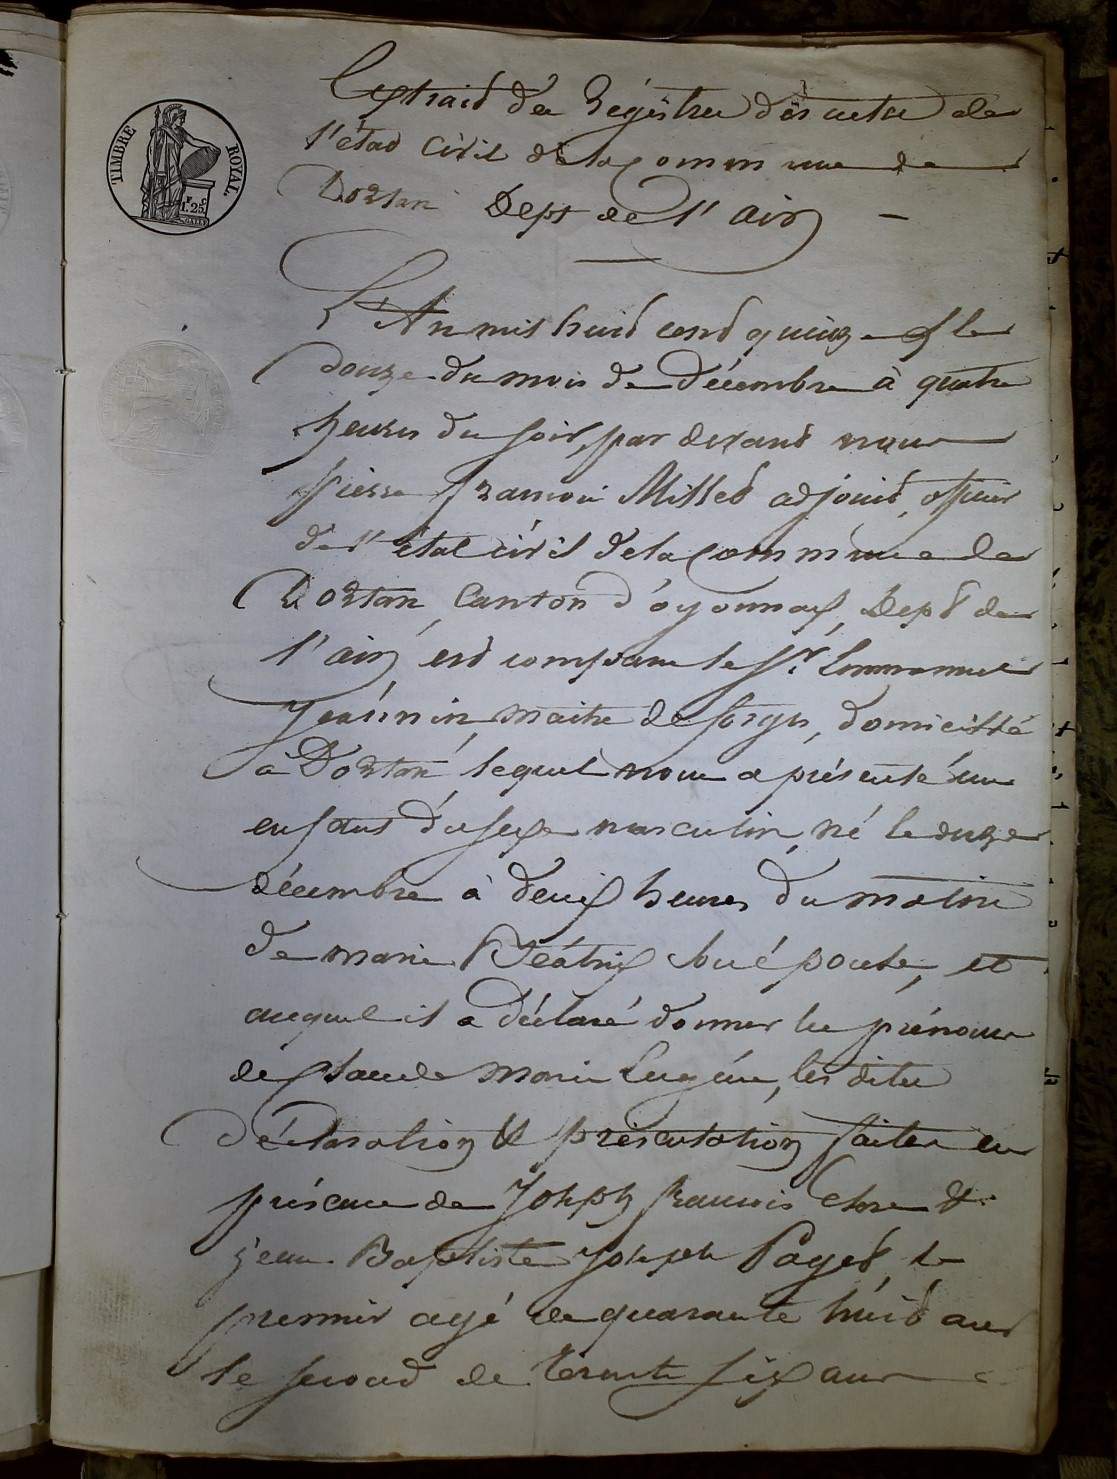 TIMBRE ROYAL
1F 25c
Extrait des Régistres des actes de
l'état Civil de la Commune de
Dortan Dept de l'ain
L'An mil huit cent quinze & le
douze du mois de décembre à quatre
heures du soir, par devant nous
pierre françois Millet adjoint, officier
de l'état civil de la Commune de
Dortan, Canton d'oyonnax, Dept de
l'ain, est comparu le Sr. Emmanuel
Jeannin, maitre de forges, domicillié
à Dortan, lequel nous a présenté un
enfant du sexe masculin, né le
décembre à deux heures du matin
de marie Béátrix épouse, et
auquel il a déclaré donner les prénoms
de marie Eugéne, les dites
déclaration & présentation faites en
présence de Joseph francois &
jean Baptiste Joseph Paget le
premier agé de quarante huit ans
le second de trente six ans